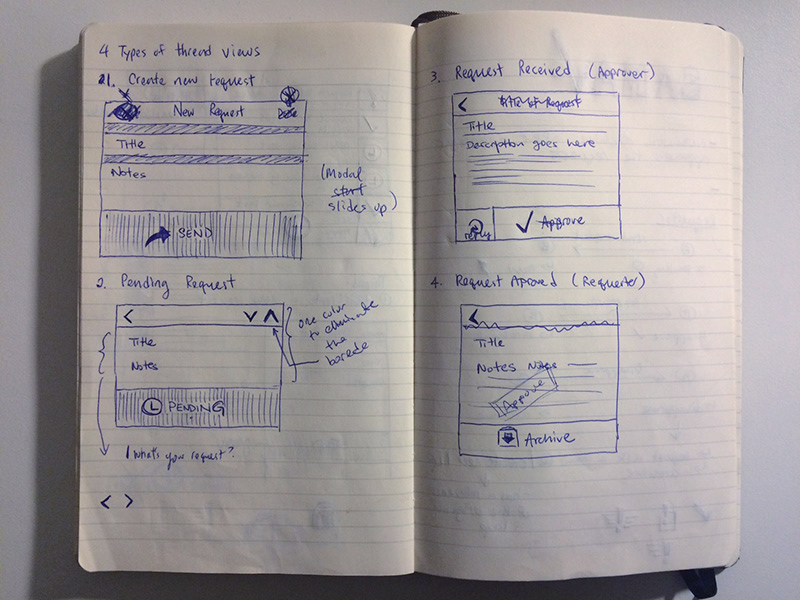 4 Types of thread views
1. Create new request
New Request
Title
Notes
SEND
(Modal
start
slides up)
2. Pending Request
Title
Notes
PENDING
one color
to eliminate
the
What's your request?
< >
3. Request Received (Approver)
Title of Request
Title
Description goes here
reply
Approve
4. Request Aproved (Requester)
Title
Notes Notes
Approve
Archive